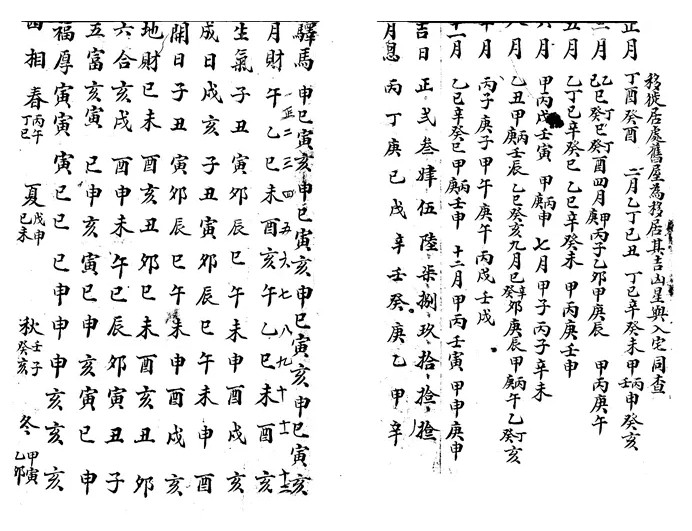 移徙居處舊屋為移居其吉凶星與入宅同查
正月 丁酉癸酉 二月乙丁巳丑 丁巳辛癸未甲丙壬申癸亥
二月 乙巳癸巳丁癸酉四月庚甲丙子乙卯甲庚辰 甲丙庚午
五月 乙丁巳辛癸巳 乙巳辛癸未 甲丙庚壬申
六月 甲丙戊壬寅 甲庚丙申 七月 甲子丙子辛未
八月 乙丑甲庚丙壬辰 乙巳癸亥九月巳癸辛卯庚辰甲庚丙午乙癸丁亥
十月 丙子庚子甲午庚午丙戌壬戌
十一月 乙巳辛癸巳甲庚丙壬申 十二月甲丙壬寅 甲申庚申
吉日 正弍叁肆伍陸柒捌玖拾拾拾
月恩 丙丁庚巳戊辛壬癸庚乙甲辛
驛馬 申巳寅亥申巳寅亥申巳寅亥
一正二三四五六七八九十十一十二
月財 午乙巳未酉亥午乙巳未酉亥
生氣 子丑寅卯辰巳午未申酉戌亥
成日 戌亥子丑寅卯辰巳午未申酉
開日 子丑寅卯辰巳午未申酉戌亥
地財 巳未酉亥丑卯巳未酉亥丑卯
六合 亥戌酉申未午巳辰卯寅丑子
五富 亥寅巳申亥寅巳申亥寅巳申
福厚 寅寅寅巳巳巳申申申亥亥亥
四相 春丙午丁巳 夏戊申己未 秋壬子癸亥 冬甲寅乙卯